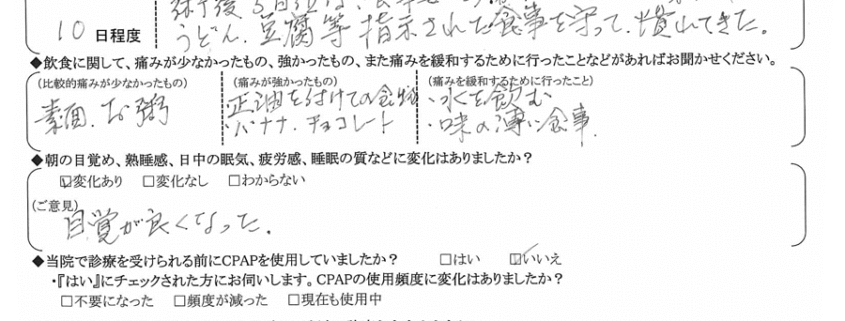 術後3日位は、
10 日程度
うどん、豆腐等 指示された食事を守って、慣れてきた。
◆飲食に関して、痛みが少なかったもの、強かったもの、また痛みを緩和するために行ったことなどがあればお聞かせください。
(比較的痛みが少なかったもの) (痛みが強かったもの) (痛みを緩和するために行ったこと)
素面、お粥 正油を付けての食物 ・水を飲む
バナナ、チョコレート ・味の薄い食事
◆朝の目覚め、熟睡感、日中の眠気、疲労感、睡眠の質などに変化はありましたか?
☑変化あり □変化なし □わからない
(ご意見)
目覚が良くなった。
◆当院で診療を受けられる前にCPAPを使用していましたか? □はい ☑いいえ
・『はい』にチェックされた方にお伺いします。CPAPの使用頻度に変化はありましたか?
□不要になった □頻度が減った □現在も使用中